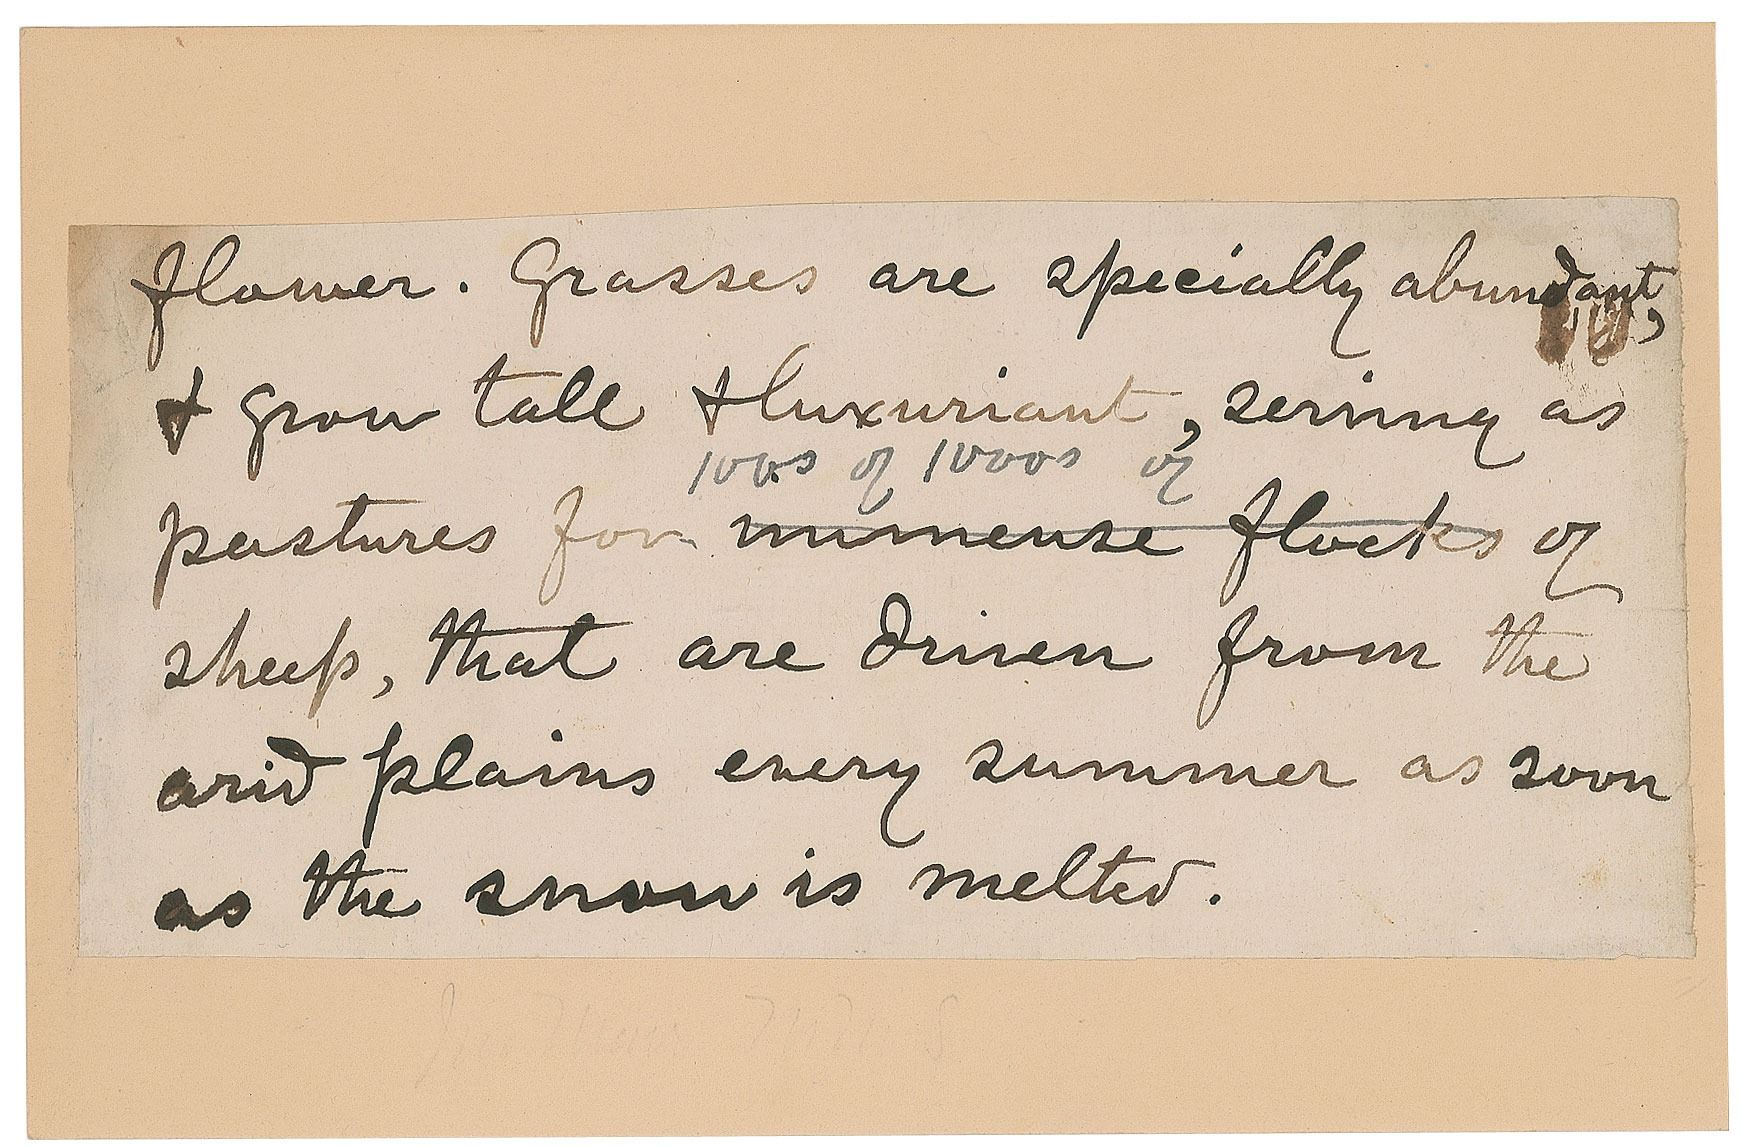 flower. Grasses are specially abundant,
& grow tall & luxuriant, serving as
100s of 1000s of
pastures for immense flocks of
sheep, that are driven from the
arid plains every summer as soon
as the snow is melted.